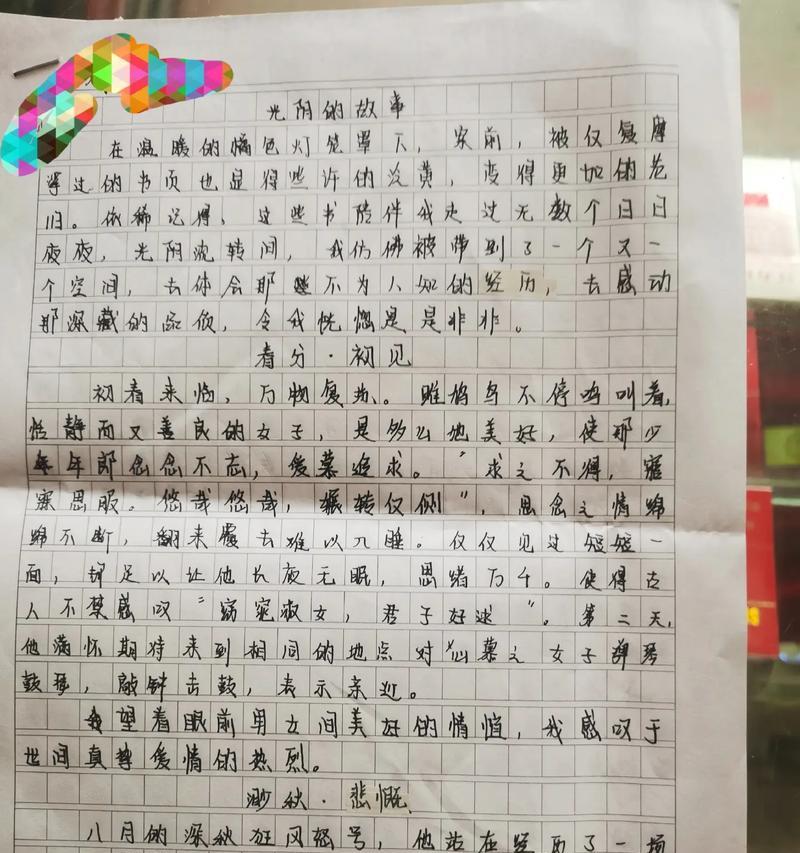 光阴的故事
在温暖的橘色灯笼罩下，案前，被反复摩
挲过的书页也显得些许的泛黄，变得更加的苍
旧。依稀记得，这些书陪伴我走过无数个日日
夜夜，光阴流转间，我仿佛被带到了一个又一
个空间，去体会那些不为人知的经历，去感动
那深藏的品质，令我恍惚是是非非。
春分·初见
初春来临，万物复苏。雎鸠鸟不停鸣叫着，
恬静而又善良的女子，是多么地美好，使那少
年郎念念不忘，爱慕追求。“求之不得，寤
寐思服。悠哉悠哉，辗转反侧”，思念之情绵
绵不断，翻来覆去难以入睡。仅仅见过短短一
面，却足以让他长夜无眠，思绪万千。使得古
人不禁感叹“窈窕淑女，君子好逑”。第二天，
他满怀期待来到相同的地点对心慕之女子弹琴
鼓瑟，敲钟击鼓，表示亲近。
望着眼前男女间美好的情愫，我感叹于
世间真挚爱情的热烈。
渺秋·悲慨
八月的深秋狂风怒号，他站在经历了一场